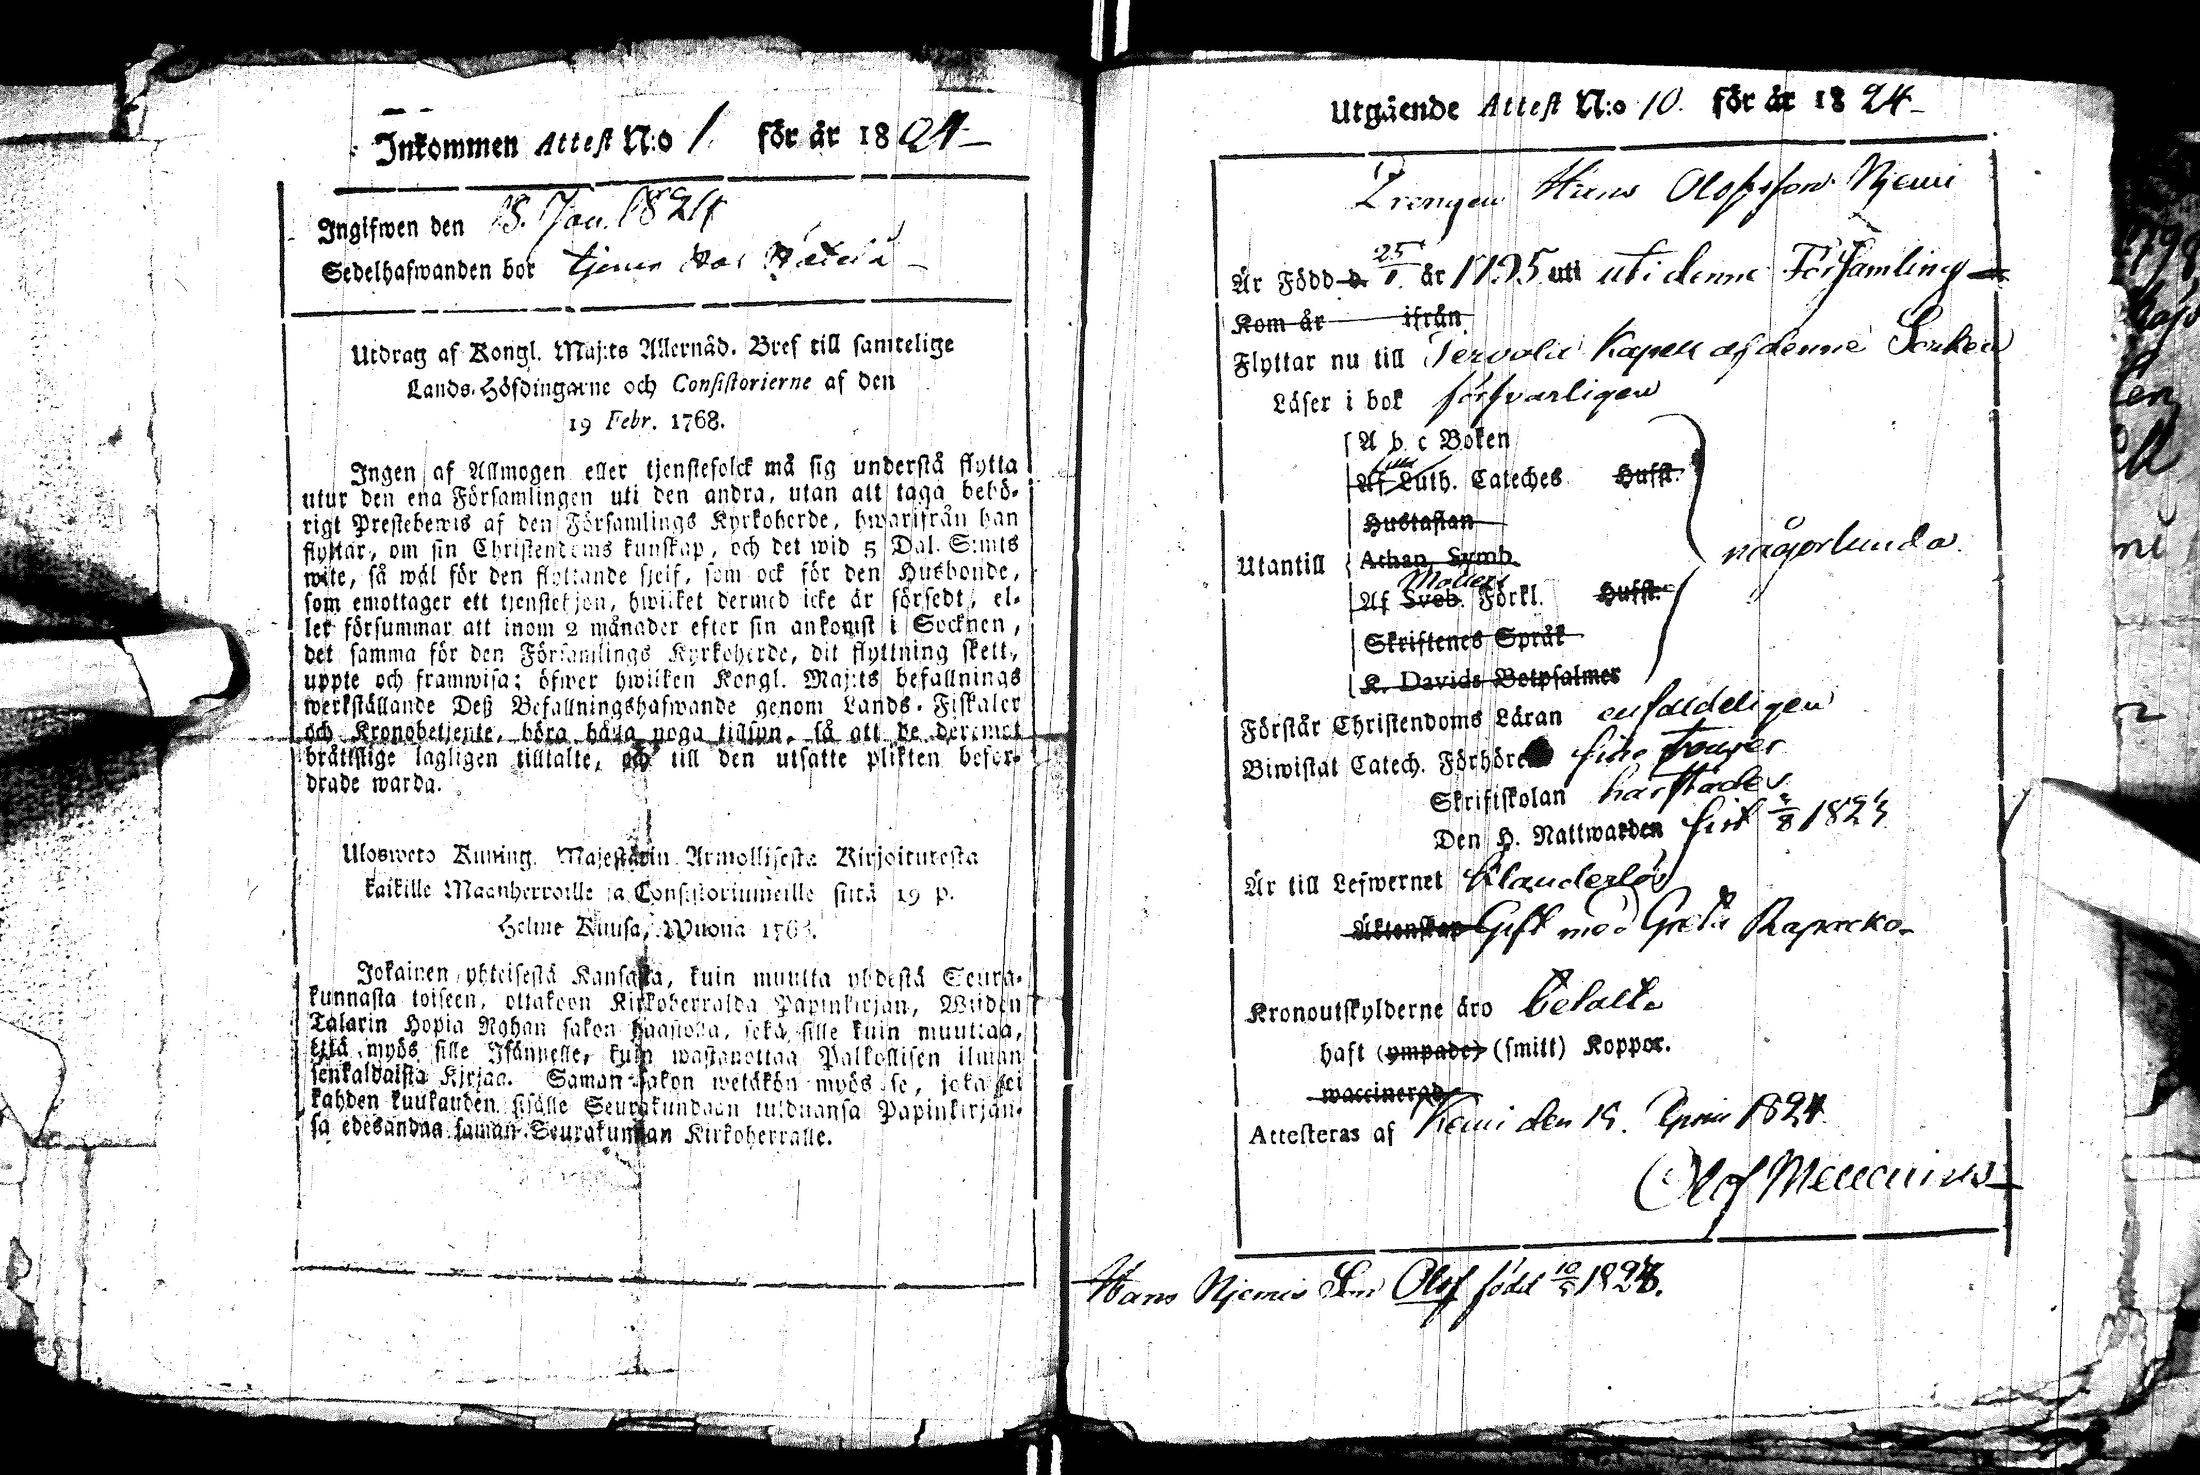 Inkommen Attest N:o 1. för år 1824
Ingifwen den 13. Jan. 1824
Sedelhafwanden bor tjenar hos
Utdrag af Kongl. Maj:ts Allernåd. Bref till samtelige
Lands-Höfdingarne och Consistorierne af den
19 Febr. 1768.
Ingen af Allmogen eller tjenstefolck må sig understå flytta
utur den ena Församlingen uti den andra, utan att taga behö-
rigt Prestebewis af den Församlings Kyrkoherde, hwarifrån han
flyttar, om sin Christendoms kunskap, och det wid 5 Dal. S:mts
wite, så wäl för den flyttande sjelf, som ock för den Husbonde,
som emottager ett tjenstehjon, hwilket dermed icke är försedt, el-
ler försummar att inom 2 månader efter sin ankomst i Socknen,
det samma för den Församlings Kyrkoherde, dit flyttning skett,
uppte och framwisa; öfwer hwilken Kongl. Maj:ts befallnings
werkställande Deß Befallningshafwande genom Lands-Fiskaler
och Kronobetjente, böra hålla noga tillsyn, så att de deremot
bråttslige lagligen tilltalte, och till den utsatte plikten befor-
drade warda.
Uloswero Kuning. Majestätin Armollisesta Kirjoituresta
kaikille Maanherroille ja Consistoriumeille siitä 19 p.
Helme Kuusa, Wuona 1768.
Jokainen yhteisestä Kansasta, kuin muutta yhdestä Seura-
kunnasta toiseen, ottakoon Kirkoherralda Papinkirjan, Wiiden
Talarin Hopia Rahan sakon haastolla, sekä sille kuin muuttaa,
että myös sille Isännelle, kuin wastanottaa Palkollisen ilman
senkaldaista Kirjaa. Saman sakon wetäkön myös se, joka ei
kahden kuukauden sisälle Seurakundaan tulduansa Papinkirjan-
sa edesandaa saman Seurakunnan Kirkoherralle.
Utgående Attest N:o 10. för år 1824
Drengen Hans Olofsson Njemi
Är Född d. 25/1. år 1795 uti uti denne Församling
Kom år ifrån
Flyttar nu till Tervola Kapell af denne Socken
Läser i bok försvarligen
A b c Boken
Af Luth. Cateches Husst.
Hustaflan
Utantill Athan. Symb. någorlunda
Af Sveb. Förkl. Husst.
Skriftenes Språk
K. Davids Botpsalmer
Förstår Christendoms Läran enfaldeligen
Biwistat Catech. Förhören sina
Skriftskolan härstädes
Den H. Nattwarden sist
Är till Lefwernet klanderlös
Äktenskap Gift med Greta
Kronoutskylderne äro betalte
haft (ympade) (smitt) Koppor.
waccinerad
Attesteras af Kemi den 1824
Olof
Hans Njemis Son Olof född